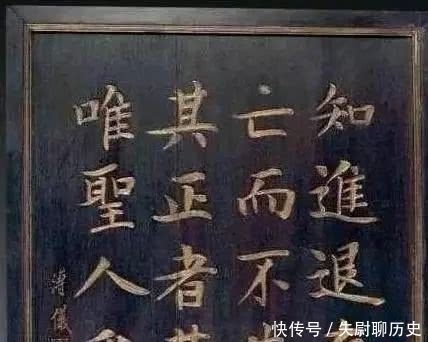 知進退
亡而不
其正者其
唯聖人
溥儀
快传号／失尉聊历史